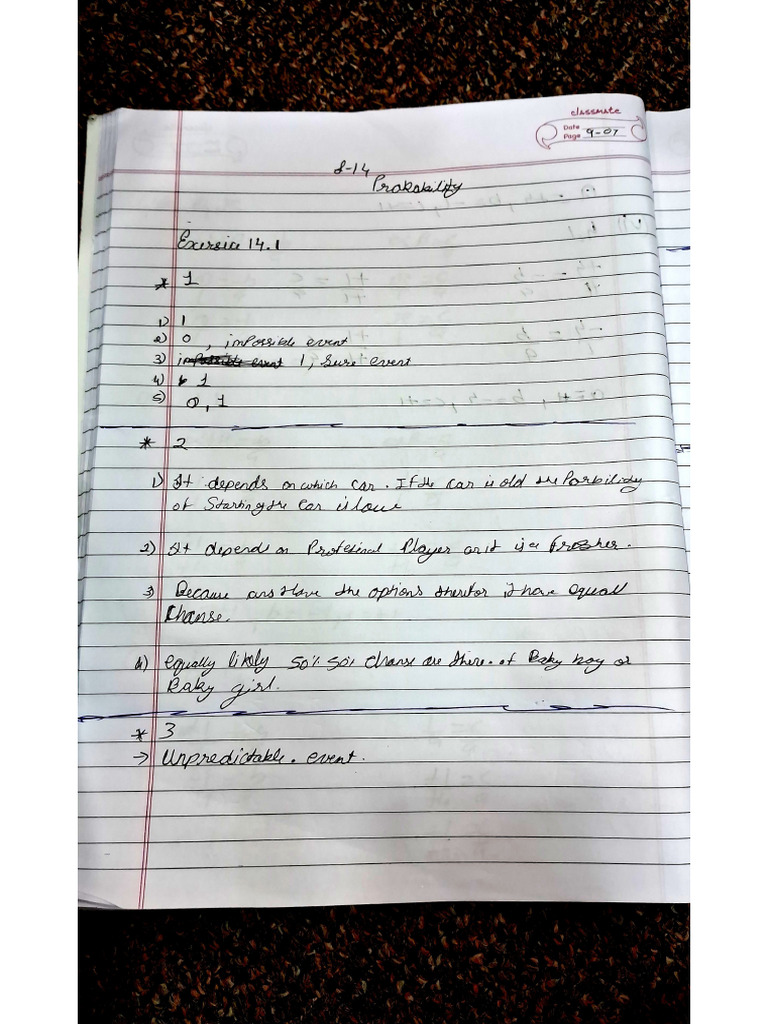 classmate
Date
Page 9-07
8-14
Probability
Exersice 14.1
* 1
1) 1
2) 0, impossible event
3) impossible event 1, Sure event
4) 1
5) 0, 1
* 2
1) It depends on which car. If the car is old the
of Starting the Car is low
2) It depends on Player or it is a Fresher.
3) Because the options have equall
Chanse.
4) equally likely 50% 50% Chanse are there. of Baby boy or
Baby girl.
* 3
→ Unpredictable. event.